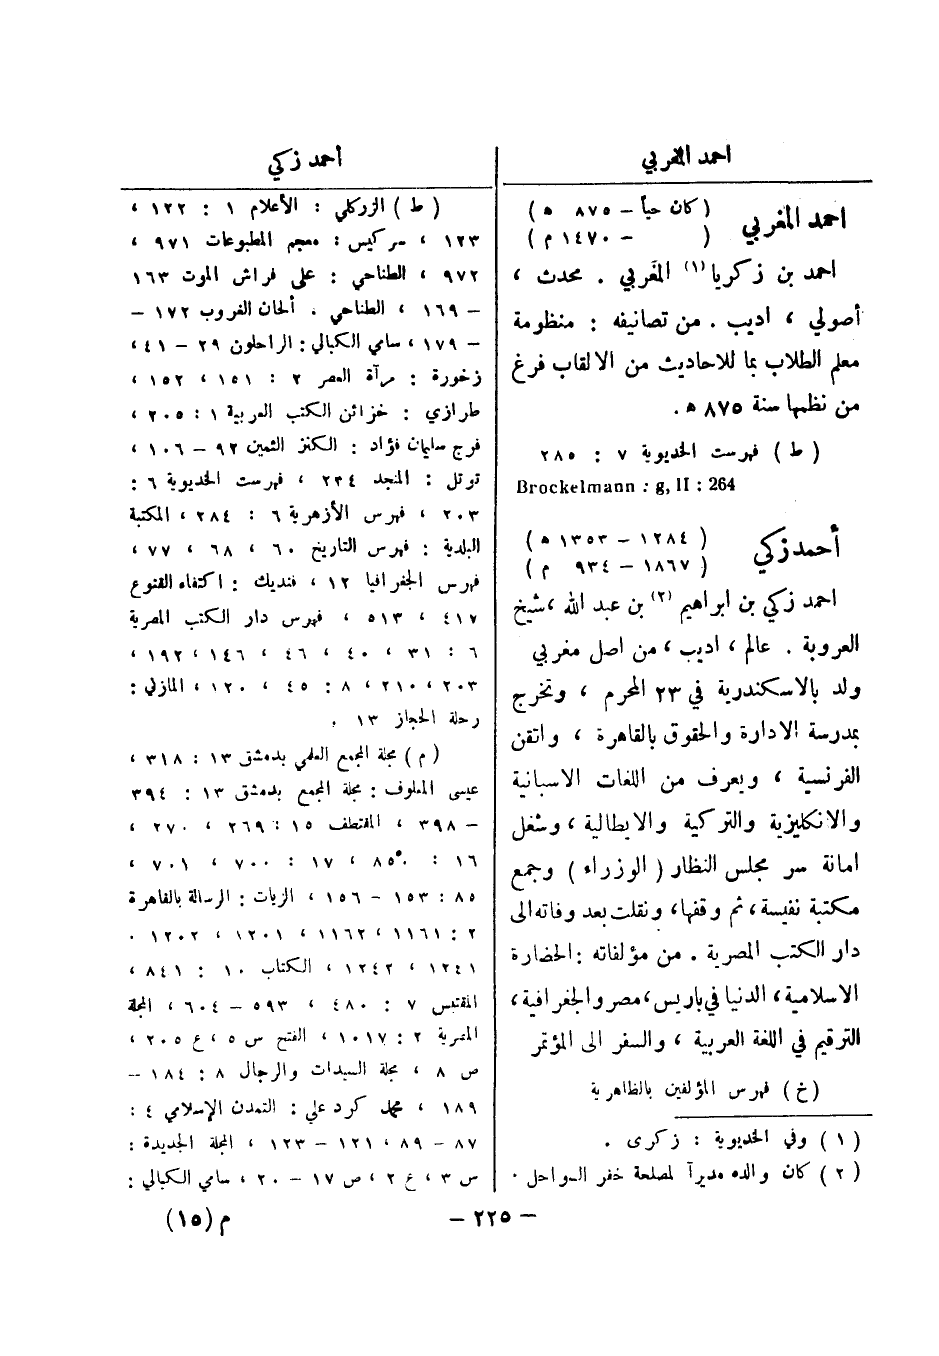 احمد المغربي
احمد المغربي
( كان حياً – ٨٧٥ ه )
( – ١٤٧٠ م )
احمد بن زكريا (١) المغَربي . محدث ،
أصولي ، اديب . من تصانيفه : منظومة
معلم الطلاب بما للاحاديث من الالقاب فرغ
من نظمها سنة ٨٧٥ ه .
( ط ) فهرست الخديوية ٧ : ٢٨٥
Brockelmann : g, II : 264
أحمد زكي
( ١٢٨٤ – ١٣٥٣ ه )
( ١٨٦٧ – ٩٣٤ م )
احمد زكي بن ابراهيم (٢) بن عبد الله ، شيخ
العروبة . عالم ، اديب ، من اصل مغربي
ولد بالاسكندرية في ٢٣ المحرم ، وتخرج
بمدرسة الادارة والحقوق بالقاهرة ، واتقن
الفرنسية ، ويعرف من اللغات الاسبانية
والانكليزية والتركية والايطالية ، وشغل
امانة سر مجلس النظار ( الوزراء ) وجمع
مكتبة نفيسة ، ثم وقفها ، ونقلت بعد وفاته الى
دار الكتب المصرية . من مؤلفاته : الحضارة
الاسلامية ، الدنيا في باريس ، مصر والجغرافية ،
الترقيم في اللغة العربية ، والسفر الى المؤتمر
( خ ) فهرس المؤلفين بالظاهرية
( ١ ) وفي الخديوية : زكرى .
( ٢ ) كان والده مديراً لمصلحة خفر السواحل .
أحمد زكي
( ط ) الزركلي : الأعلام ١ : ١٢٢ ،
١٢٣ ، سركيس : معجم المطبوعات ٩٧١ ،
٩٧٢ ، الطناحي : على فراش الموت ١٦٣
– ١٦٩ ، الطناحي . ألحان الغروب ١٧٢ –
– ١٧٩ ، سامي الكيالي : الراحلون ٢٩ – ٤١ ،
زخورة : مرآة العصر ٢ : ١٥١ ، ١٥٢ ،
طرازي : خزائن الكتب العربية ١ : ٢٠٥ ،
فرج سليمان فؤاد : الكنز الثمين ٩٢ – ١٠٦ ،
توتل : المنجد ٢٣٤ ، فهرست الخديوية ٦ :
٢٠٣ ، فهرس الأزهرية ٦ : ٢٨٤ ، المكتبة
البلدية : فهرس التاريخ ٦٠ ، ٦٨ ، ٧٧ ،
فهرس الجغرافيا ١٢ ، فنديك : اكتفاء القنوع
٤١٧ ، ٥١٣ ، فهرس دار الكتب المصرية
٦ : ٣١ ، ٤٠ ، ٤٦ ، ١٤٦ ، ١٩٢ ،
٢٠٣ ، ٢١٠ ، ٨ : ٤٥ ، ١٢٠ ، المازني :
رحلة الحجاز ١٣ .
( م ) مجلة المجمع العلمي بدمشق ١٣ : ٣١٨ ،
عيسى المعلوف : مجلة المجمع بدمشق ١٣ : ٣٩٤
– ٣٩٨ ، المقتطف ١٥ : ٢٦٩ ، ٢٧٠ ،
١٦ : ٨٥٠ ، ١٧ : ٧٠٠ ، ٧٠١ ،
٨٥ : ١٥٣ – ١٥٦ ، الزيات : الرسالة بالقاهرة
٢ : ١١٦١ ، ١١٦٢ ، ١٢٠١ ، ١٢٠٢ .
١٢٤١ ، ١٢٤٢ ، الكتاب ١٠ : ٨٤١ ،
المقتبس ٧ : ٤٨٠ ، ٥٩٣ – ٦٠٤ ، المجلة
المصرية ٢ : ١٠١٧ ، الفتح س ٥ ، ع ٢٠٥ ،
ص ٨ ، مجلة السيدات والرجال ٨ : ١٨٤ –
١٨٩ ، محمد كرد علي : التمدن الإسلامي ٤ :
٨٧ – ٨٩ ، ١٢١ – ١٢٣ ، المجلة الجديدة :
س ٣ ، ع ٢ ، ص ١٧ – ٢٠ ، سامي الكيالي :
– ٢٢٥ –
م (١٥)